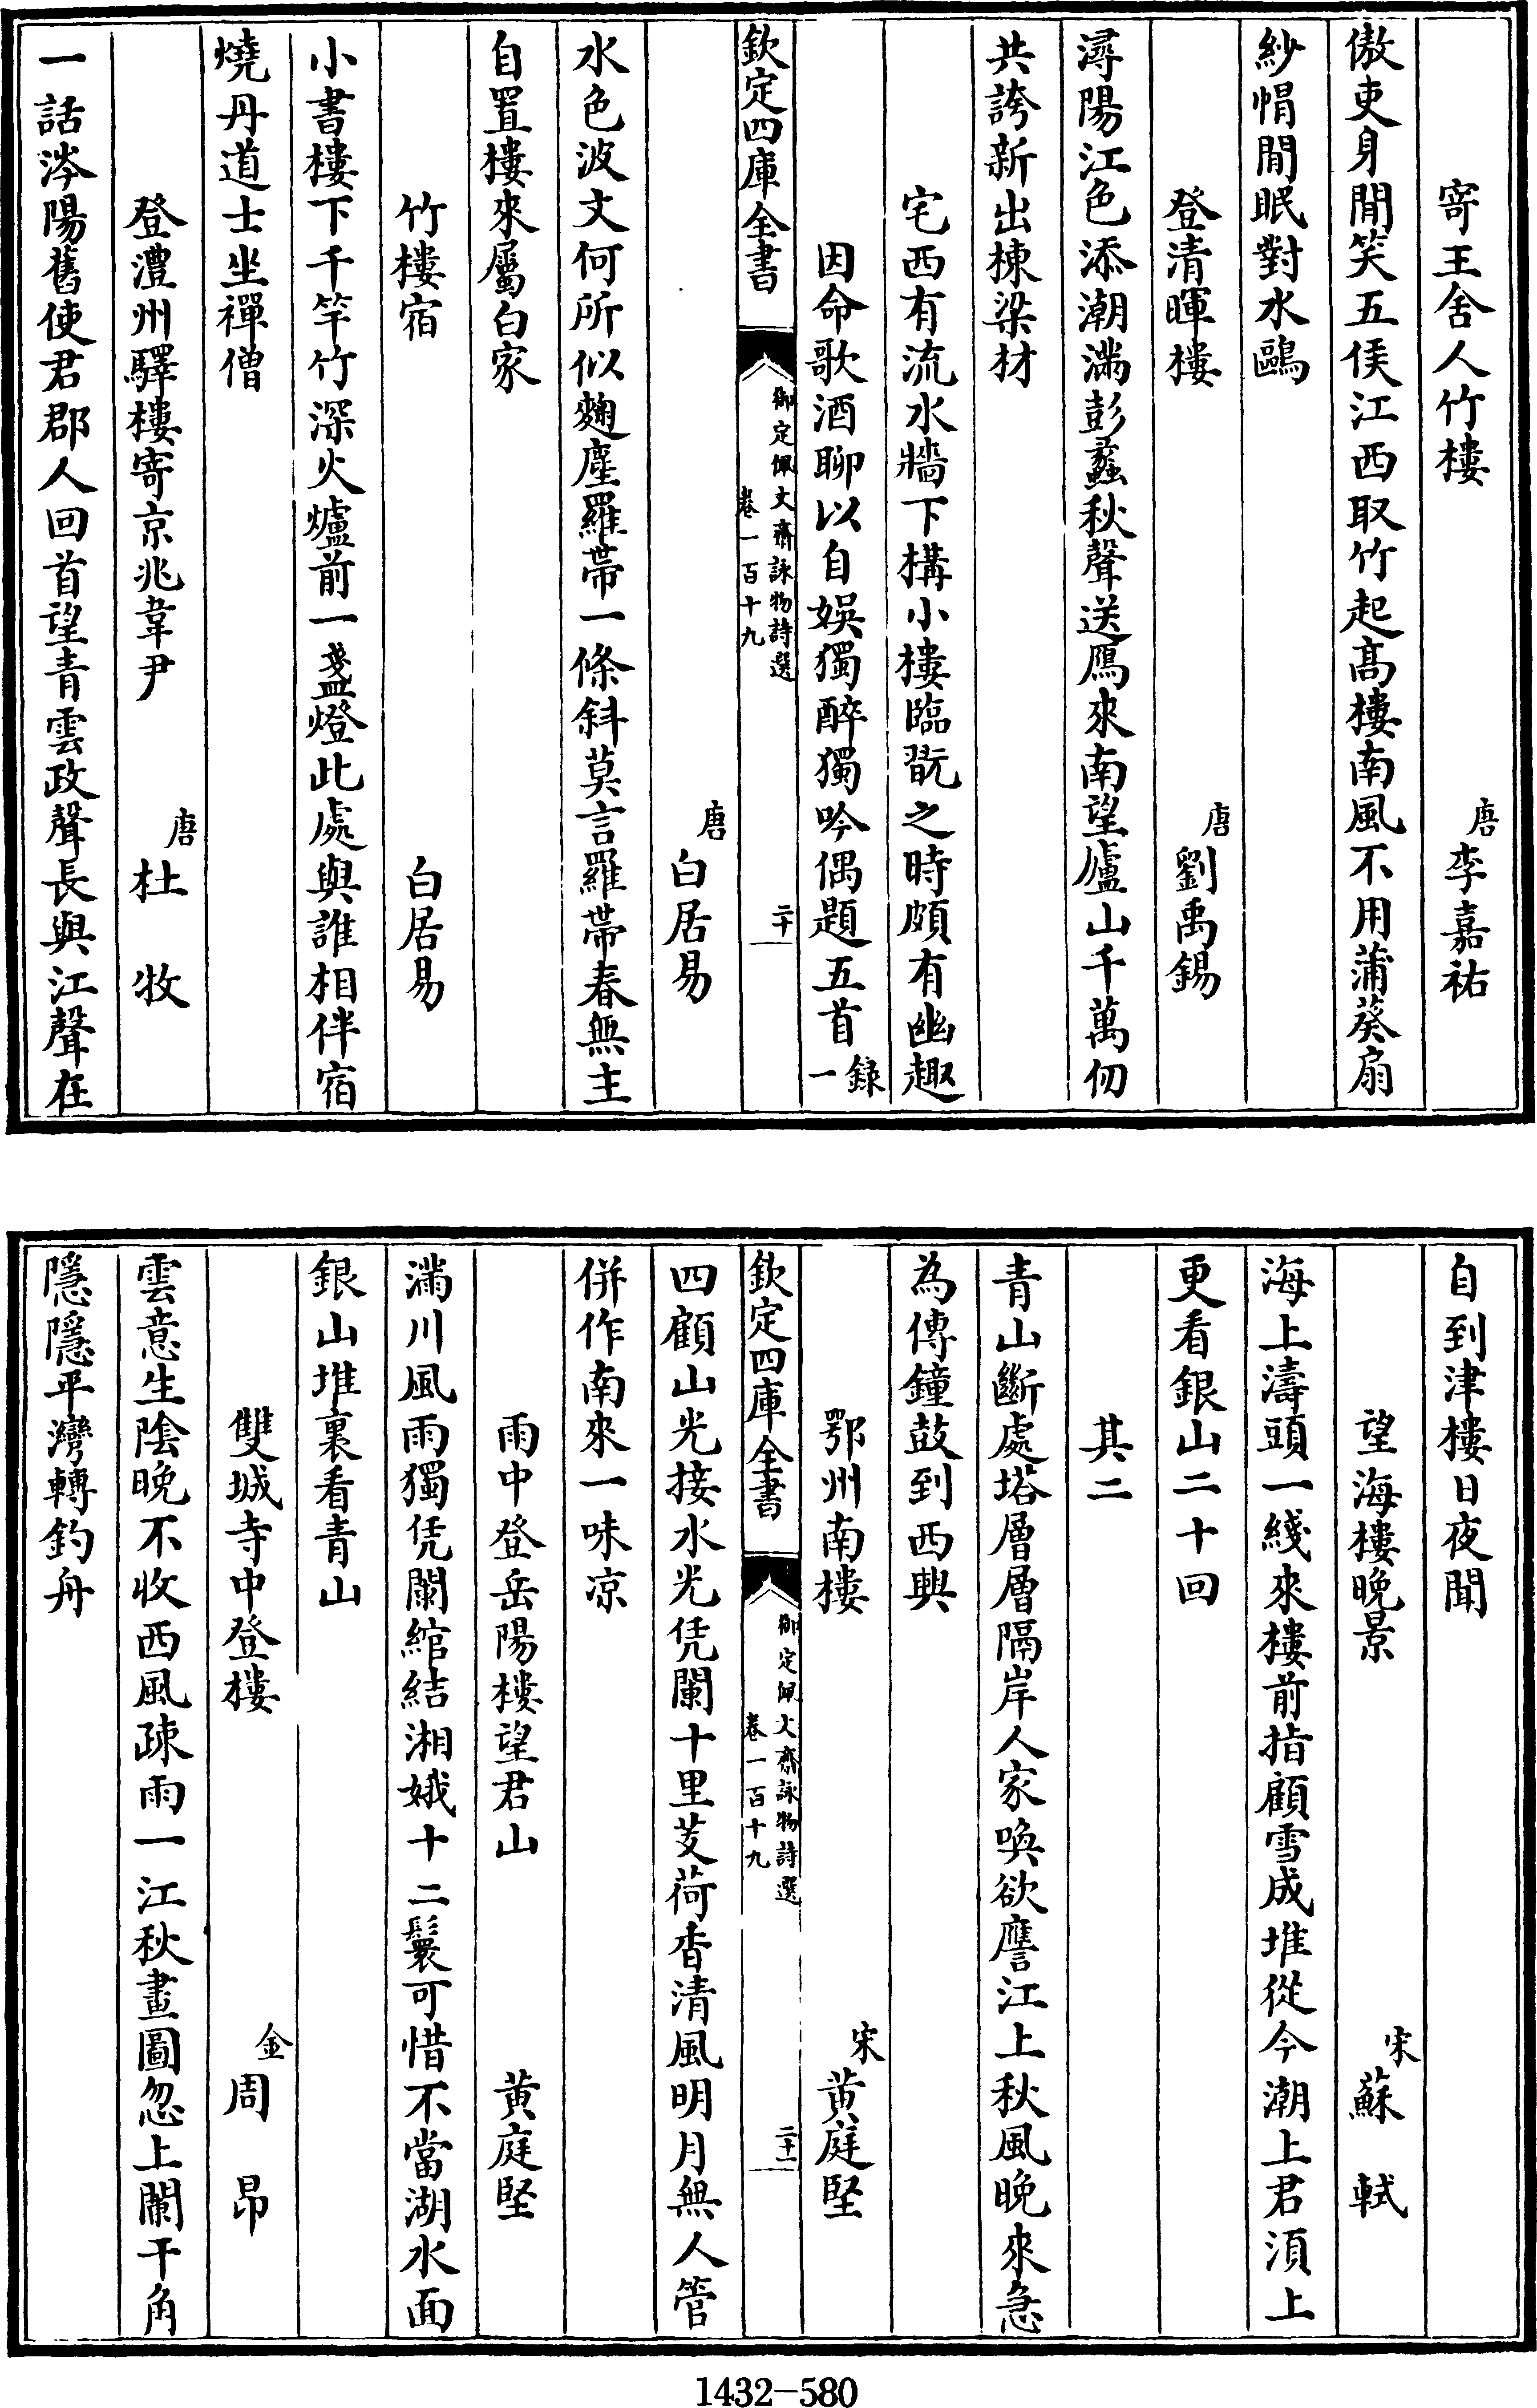 寄王舍人竹樓　唐李嘉祐
傲吏身閒笑五侯江西取竹起髙樓南風不用蒲葵扇
紗㡌閒眠對水鷗
登清暉樓　唐劉禹錫
潯陽江色添潮滿彭蠡秋聲送鴈來南望廬山千萬仞
共誇新出棟梁材
宅西有流水牆下構小樓臨翫之時頗有幽趣
因命歌酒聊以自娛獨醉獨吟偶題五首録一
欽定四庫全書　御定佩文齋詠物詩選　卷一百十九　二十
唐白居易
水色波文何所似麴塵羅帶一條斜莫言羅帶春無主
自置樓來屬白家
竹樓宿　白居易
小書樓下千竿竹深火爐前一盞燈此處與誰相伴宿
燒丹道士坐禪僧
登澧州驛樓寄京兆韋尹　唐杜牧
一話涔陽舊使君郡人回首望青雲政聲長與江聲在
自到津樓日夜聞
望海樓晚景　宋蘇軾
海上濤頭一綫來樓前指顧雪成堆從今潮上君須上
更看銀山二十回
其二
青山斷處塔層層隔岸人家喚欲譍江上秋風晚來急
為傳鐘鼓到西興
鄂州南樓　宋黄庭堅
欽定四庫全書　御定佩文齋詠物詩選　卷一百十九　二十一
四顧山光接水光凭闌十里芰荷香清風明月無人管
併作南來一味凉
雨中登岳陽樓望君山　黄庭堅
滿川風雨獨凭闌綰結湘娥十二鬟可惜不當湖水面
銀山堆裏看青山
雙城寺中登樓　金周昂
雲意生陰晚不收西風疎雨一江秋畫圖忽上闌干角
隱隱平灣轉釣舟
1432-580